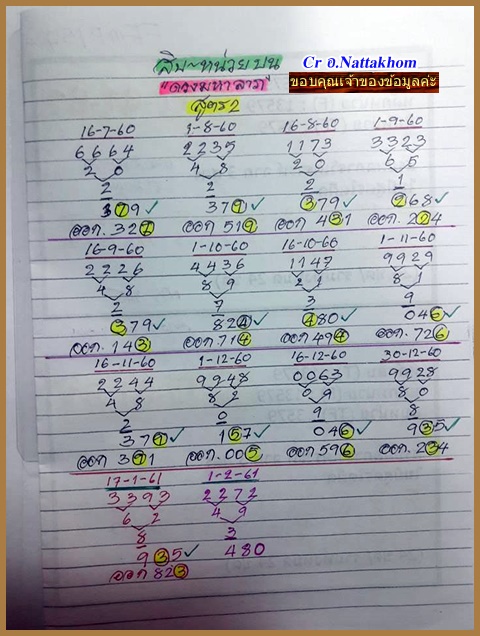 สิบ-หน่วย บน
Cr อ.Nattakhom
"ดวงมหาลาภ"
ขอบคุณเจ้าของข้อมูลค่ะ
สูตร 2
16-7-60 1-8-60 16-8-60 1-9-60
6664 2235 1173 3323
20 48 20 65
2 2 2 1
379 371 379 268
ออก. 327 ออก 519 ออก 431 ออก. 224
16-9-60 1-10-60 16-10-60 1-11-60
2226 4436 1147 9929
48 89 21 81
2 7 3 9
379 824 480 046
ออก. 143 ออก. 714 ออก 494 ออก. 726
16-11-60 1-12-60 16-12-60 30-12-60
2244 9948 0063 9928
48 82 09 80
2 0 9 8
371 157 046 935
ออก 391 ออก. 005 ออก 596 ออก. 234
17-1-61 1-2-61
3393 2272
62 49
8 3
935 480
ออก 823